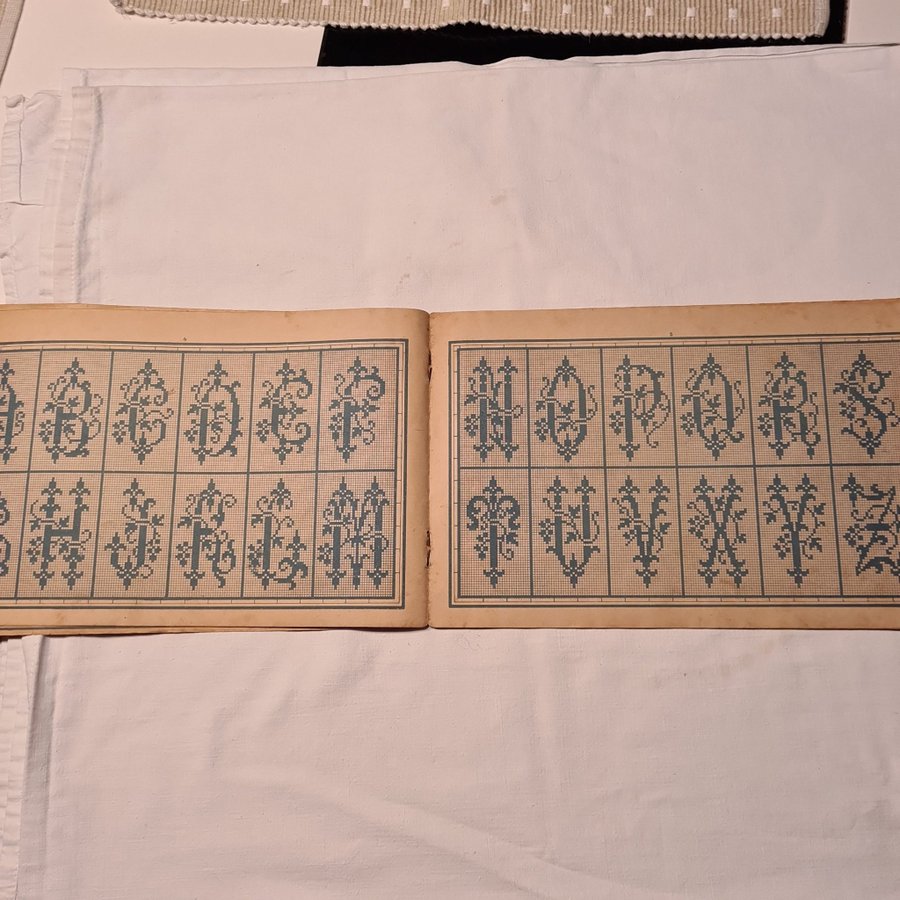 A B C D E F
G H J K L M
N O P Q R S
T U V X Y Z